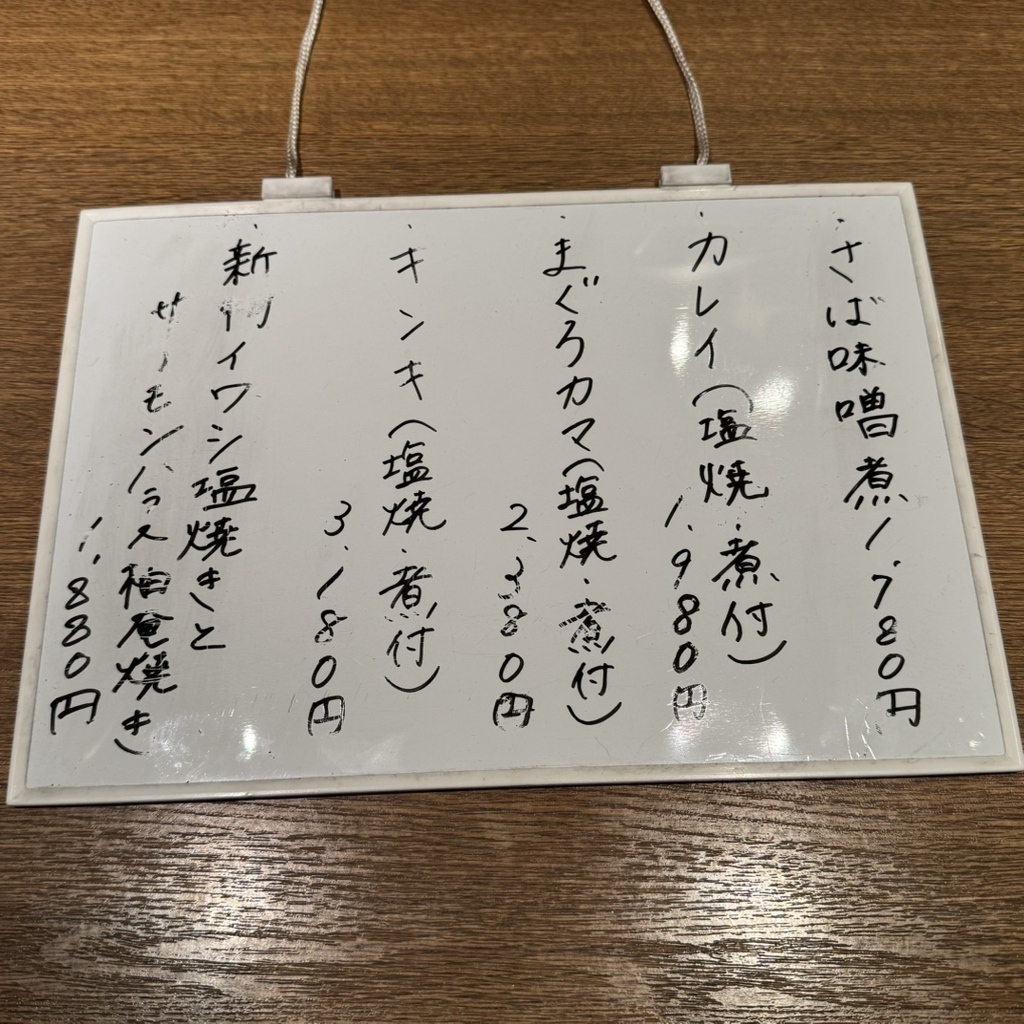 ・さば味噌煮1,780円
・カレイ(塩焼・煮付)
1,980円
・まぐろカマ(塩焼・煮付)
2,380円
・キンキ(塩焼・煮付)
3,180円
・新物イワシ塩焼きと
サーモンハラス柚庵焼き
1,880円